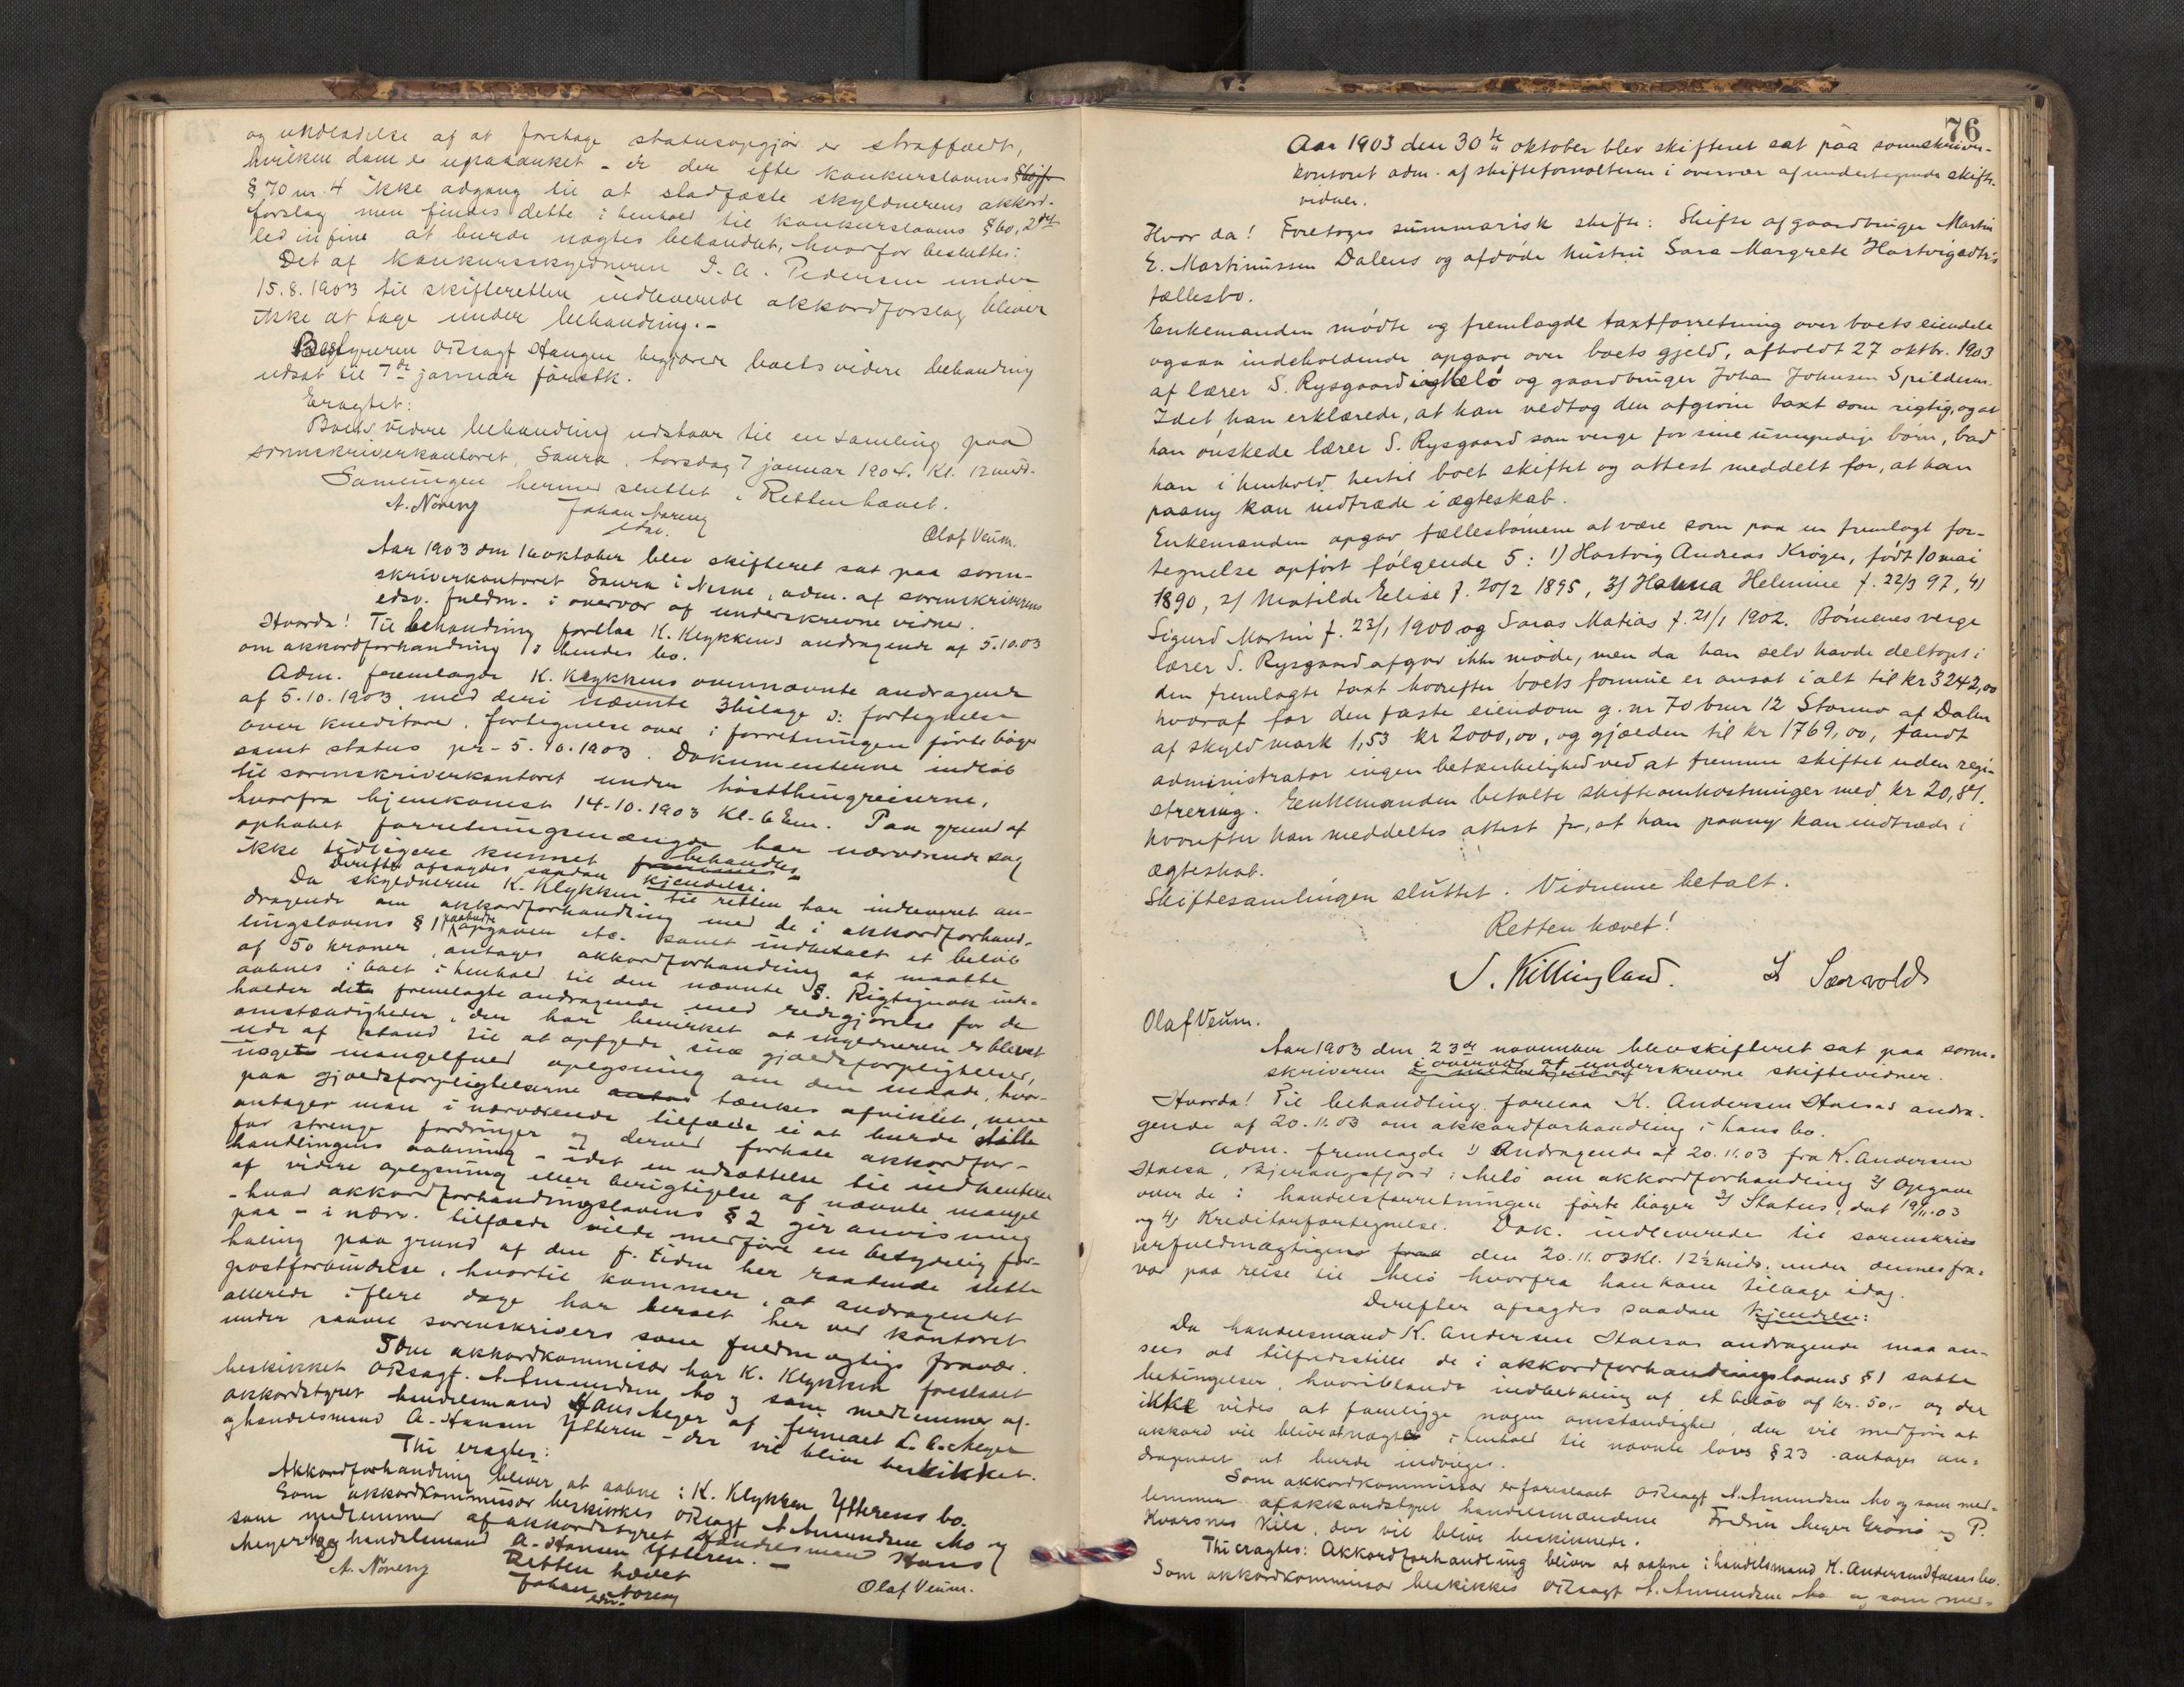 og undladelse af at foretage statusopgjør er straffældt,
hvilken dom er upaaanket - er der efter konkurslovens
§ 70 nr. 4 ikke adgang til at stadfæste skyldnerens akkord-
forslag men findes dette i henhold til konkurslovens § 60, 2det
led in fine at burde nægtes behandlet, hvorfor besluttes:
Det af konkursskyldneren I. A. Pedersen under
15.8.1903 til skifteretten indleverede akkordforslag bliver
ikke at tage under behandling. -
Bestyreren Oksagf Haugen begjærede boets videre behandling
udsat til 7de januar førstk.
Eragtet:
Boets videre behandling udstaar til en samling paa
sorenskriverkontoret, Saura, torsdag 7 januar 1904. Kl. 12 midd.
Samlingen hermed sluttet. Retten hævet.
A. Noreng Johan Noreng
edsv. Olaf Veum.
Aar 1903 den 16 oktober blev skifteret sat paa soren-
skriverkontoret Saura i Nesne, adm. af sorenskriverens
edsv. fuldm. i overvær af underskrevne vidner.
Hvorda! Til behandling forelaa K. Klykkens andragende af 5.10.03
om akkordforhandling i hendes bo.
Adm. fremlagde K. Klykkens ovennævnte andragende
af 5.10.1903 med deri nævnte 3 bilage ɔ: fortegnelse
over kreditorer, fortegnelse over i forretningen førte bøger
samt status pr. 5.10.1903. Dokumenterne indløb
til sorenskriverkontoret under høstthingreiserne,
hvorfra hjemkomst 14-10.1903 Kl. 6 Em. Paa grund af
ophobet forretningsmængde har nærværende sag
ikke tidligere kunnet behandles
Derefter afsagdes saadan kjendelse.
Da skyldneren K. Klykken til retten har indleveret an-
dragende om akkordforhandling med de i akkordforhand-
lingslovens § 1 paabudte opgaver etc. samt indbetalt et beløb
af 50 kroner, antages akkordforhandling at maatte
aabnes i boet i henhold til den nævnte §. Rigtignok inde-
holder det fremlagte andragende med redegjørelse for de
omstændigheder, der har bevirket at skyldneren er blevet
ude af stand til at opfylde sine gjældsforpligtelser,
noget mangelfuld oplysning om den maade, hvor-
paa gjældsforpligtelserne tænkes afviklet, men
antager man i nærværende tilfælde ei at burde stille
for strenge fordringer og derved forhale akkordfor-
handlingens aabning - idet en udsættelse til indhentelse
af videre oplysning eller berigtigelse af nævnte mangel
- hvad akkordforhandlingslovens § 2 gir anvisning
paa - i nærv. tilfælde vilde medføre en betydelig for-
haling paa grund af den f. tiden her raadende slette
postforbindelse, hvortil kommer, at andragendet
allerede i flere dage har beroet her ved kontoret
under saavel sorenskrivers som fuldmægtigs fravær.
Som akkordkommisær har K. Klykken foreslaaet
beskikket Oksagf. N. Amundsen Mo og som medlemmer af
akkordstyret handelsmand Hans Meyer af firmaet L. A. Meyer
og handelsmand A. Hansen Ytteren - der vil blive beskikket.
Thi eragtes:
Akkordforhandling bliver at aabne i K. Klykken Ytterens bo.
Som akkordkommissær beskikkes Oksagf N. Amundsen Mo og
som medlemmer af akkordstyret handelsmand Hans
Meyer og handelsmand A. Hansen Ytteren. -
Retten hævet
A. Noreng Johan Noreng
edsv. Olaf Veum.
76
Aar 1903 den 30te oktober blev skifteret sat paa sorenskriver-
kontoret adm. af skifteforvalteren i overvær af undertegnede skifte-
vidner.
Hvor da! Foretoges summarisk skifte: Skifte af gaardbruger Martin
E. Martinussen Dalens og afdøde hustru Sara Margrete Hartvigsdtr's
fællesbo.
Enkemanden mødte og fremlagde taxtforretning over boets eiendele
ogsaa indeholdende opgave over boets gjeld, afholdt 27 oktbr. 1903
af lærer S. Rysgaard og gaardbruger Johan Johnsen Spildern.
Idet han erklærede, at han vedtog den afgivne taxt som rigtig, og at
han ønskede lærer S. Rysgaard som verge for sine umyndige børn, bad
han i henhold hertil boet skiftet og attest meddelt for, at han
paany kan indtræde i ægteskab.
Enkemanden opgav fællesbørnene at være som paa en fremlagt for-
tegnelse opført følgende 5: 1) Hartvig Andreas Krøger, født 10 mai
1890, 2) Matilde Elise f. 20/2 1895, 3) Hanna Helmine f. 22/3 97, 4)
Sigurd Martin f. 23/1 1900 og Saras Matias f. 21/1 1902. Børnenes verge
lærer S. Rysgaard afgav ikke møde, men da han selv havde deltaget i
den fremlagte taxt hvorefter boets formue er ansat i alt til kr 3242,00
hvoraf for den faste eiendom g. nr 70 bnr 12 Stormo af Dalen
af skyld mark 1,53 kr 2000,00, og gjælden til kr 1769,00, fandt
administrator ingen betænkelighed ved at fremme skiftet uden regi-
strering. Enkemanden betalte skifteomkostninger med kr 20,84.
hvorefter han meddeltes attest for, at han paany kan indtræde i
ægteskab.
Skiftesamlingen sluttet. Vidnerne betalt.
Retten hævet!
S. Killingland.
Olaf Veum.
Aar 1903 den 23de november blev skifteret sat paa soren-
skriveren i overvær af underskrevne skiftevidner.
Hvorda! Til behandling forelaa K. Andersen Halsas andra-
gende af 20.11.03 om akkordforhandling i hans bo.
Adm. fremlagde 1) Andragende af 20.11.03 fra K. Andersen
Halsa, Bjerangsfjord i Melø om akkordforhandling 2) Opgave
over de i handelsforretningen førte bøger 3) Status, dat 19/11.03
og 4) Kreditorfortegnelse. Dok. indleverede til sorenskri-
verfuldmægtigen den 20.11.03 Kl. 12½ midd. under dennes fra-
vær paa reise til Melø hvorfra han kom tilbage idag.
Derefter afsagdes saadan kjendelse:
Da handelsmand K. Andersen Halsas andragende maa an-
sees at tilfredsstille de i akkordforhandlingslovens § 1 satte
betingelser, hvoriblandt indbetaling af et beløb af kr. 50,- og der
ikke vides at foreligge nogen omstændighed, der vil medføre at
akkord vil blive nægtet i henhold til nævnte lovs § 23 antages an-
dragendet at burde indvilges.
Som akkordkommissær er foreslaaet Oksagf N. Amundsen Mo og som med-
lemmer af akkordstyret handelsmændene Fredrin Meyer Grønø og P.
Kvarsnes Kila, der vil blive beskikkede.
Thi eragtes: Akkordforhandling bliver at aabne i handelsmand K. Andersen Halsas bo.
Som akkordkommissær beskikkes Oksagf N. Amundsen Mo og som med-